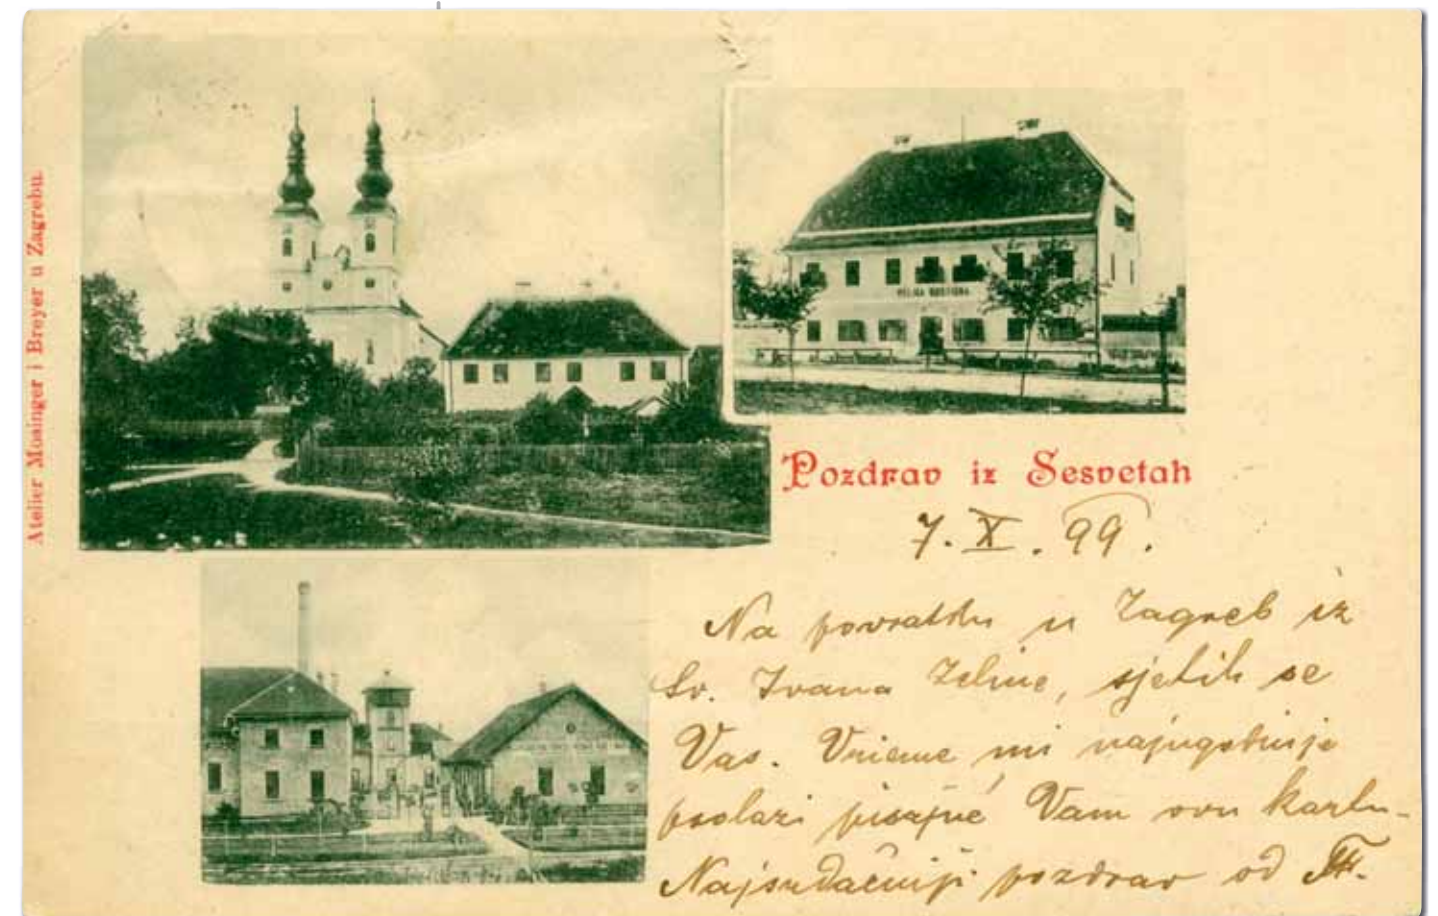 Atelier Mosinger i Breyer u Zagrebu.
VELIKA GOSTIONA
Pozdrav iz Sesvetah
7. X. 99.
Na povratku u Zagreb iz
Sv. Ivana Zeline, sjetih se
Vas. Vrieme mi najugodnije
prolazi pisajuć Vam ovu kartu.
Najsrdačniji pozdrav od